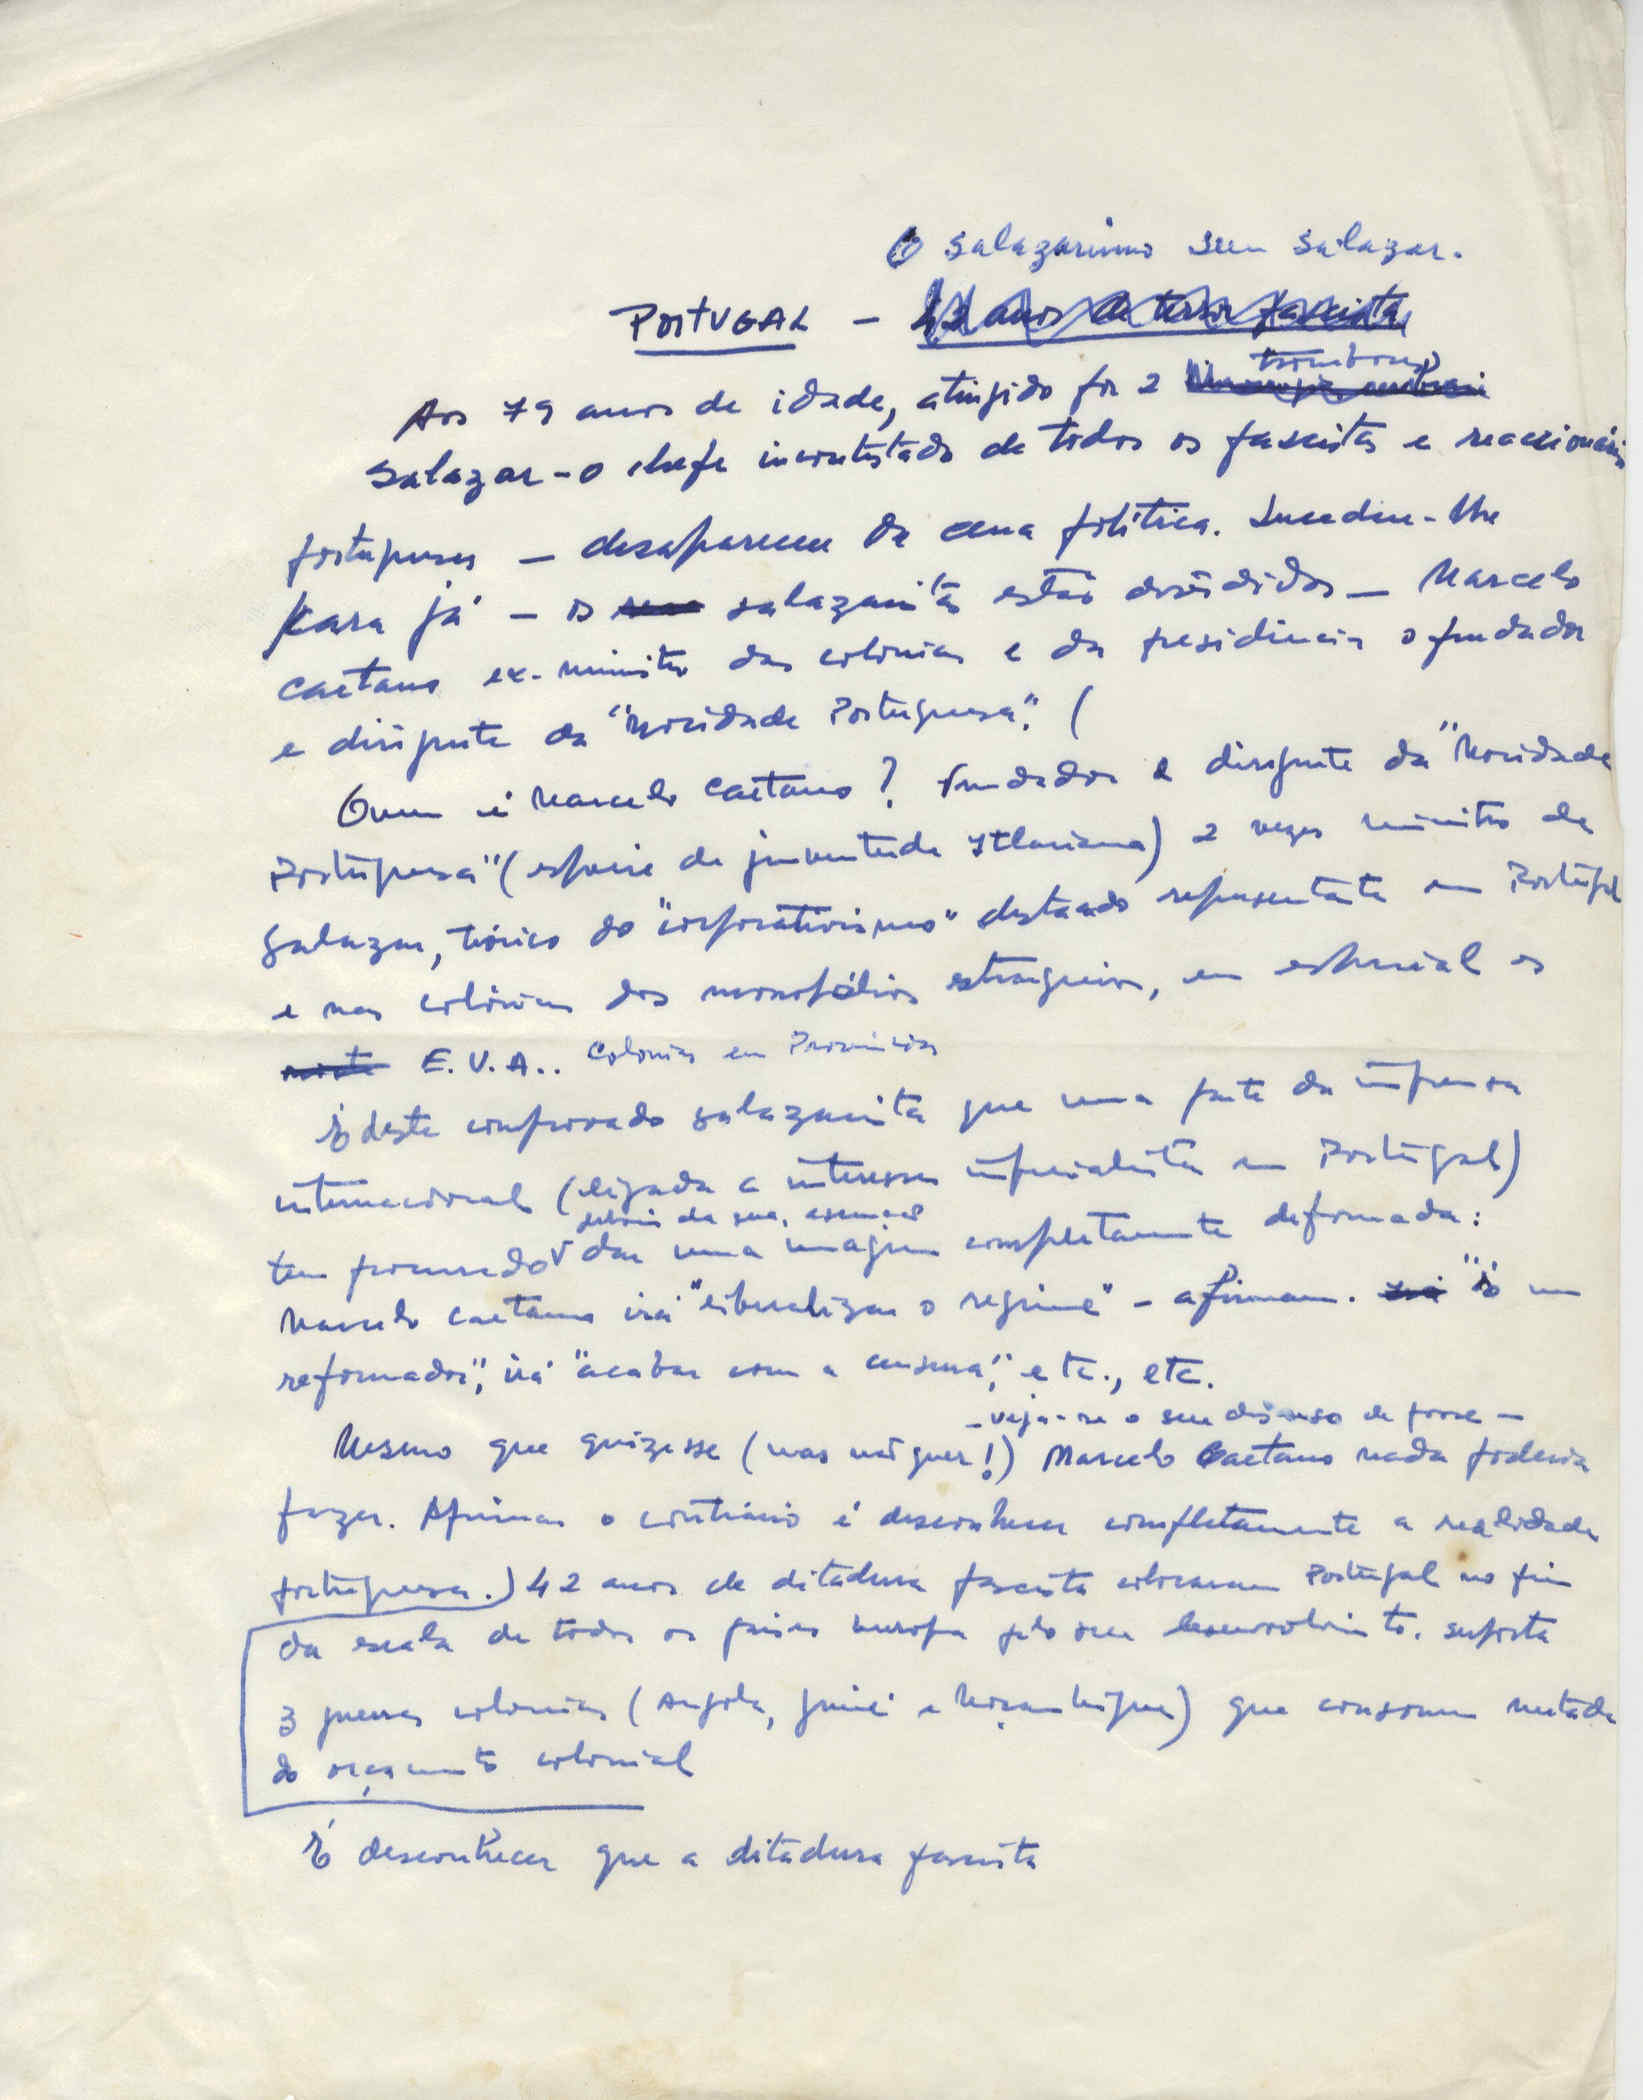 O salazarismo sem Salazar.
PORTUGAL - 42 anos de terror fascista
tromboses
Aos 79 anos de idade, atingido por 2
Salazar - o chefe incontestado de todos os fascistas e reaccionários
portugueses - desapareceu da cena política. Sucedeu-lhe
para já - os salazaristas estão divididos - Marcelo
Caetano ex-ministro das colonias e da presidência o fundador
e dirigente da "Mocidade Portuguesa". (
Quem é Marcelo Caetano? Fundador e dirigente da "Mocidade
Portuguesa" (espécie de juventude Itleriana) 2 vezes ministro de
Salazar, teórico do "corporativismo" destacado representante em Portugal
e nas colónias dos monopólios estrangeiros, em especial os
E.U.A.. Colonias em Provincias
É deste comprovado salazarista que uma parte da imprensa
internacional (ligada a interesses imperialistas em Portugal)
depois da sua ascensão
tem procurado dar uma imagem completamente deformada:
Marcelo Caetano irá "liberalizar o regime" - afirmam. "É um
reformador", irá "acabar com a censura", etc., etc.
- veja-se o seu discurso de posse -
Mesmo que quizesse (mas não quer!) Marcelo Caetano nada poderia
fazer. Afirmar o contrário é desconhecer completamente a realidade
portuguesa.) 42 anos de ditadura fascista colocaram Portugal no fim
da escala de todos os países europa pelo seu desenvolvimento. suporta
3 guerras coloniais (Angola, Guiné e Moçambique) que consomem metade
do orçamento colonial
É desconhecer que a ditadura fascista